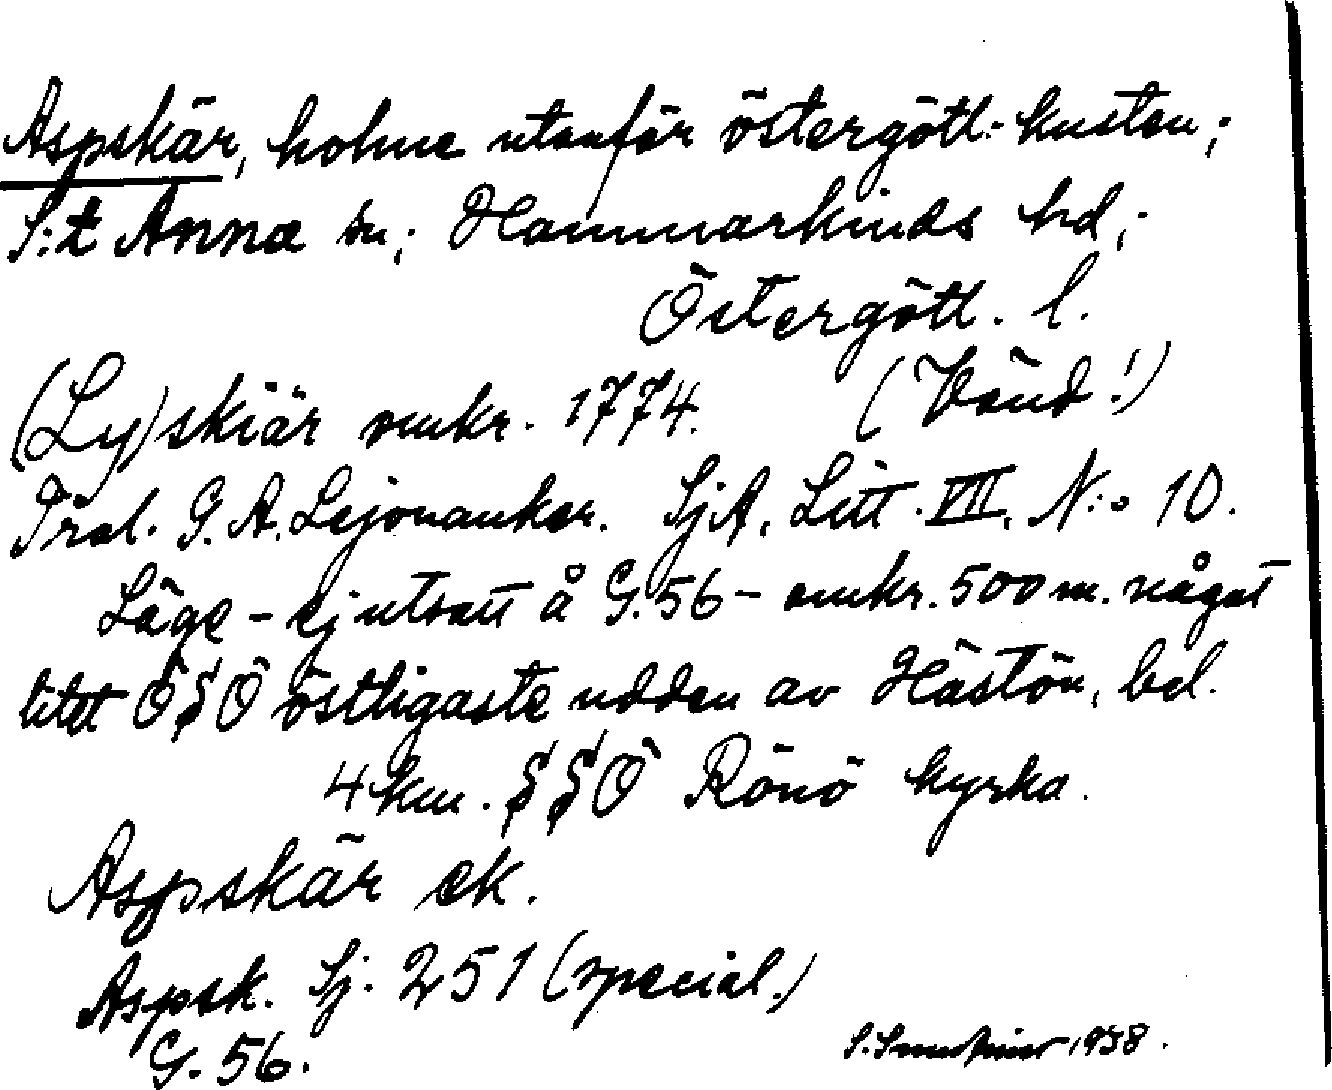 Aspskär, holme utanför östergötl. kusten;
S:t Anna sn; Hammarkinds hd;
Östergötl. l.
(Ly)skiär omkr. 1774. (Vänd!)
Trol. G. A. Lejonanker. SjA, Litt. VII, N:o 10.
Läge - ej utsatt å G.56 - omkr. 500 m. något
litet ÖSÖ östligaste udden av Hästön, bel.
4 km. SSÖ Rönö kyrka.
Aspskär ek.
Aspsk. Sj. 251 (special.)
G. 56.
1938.